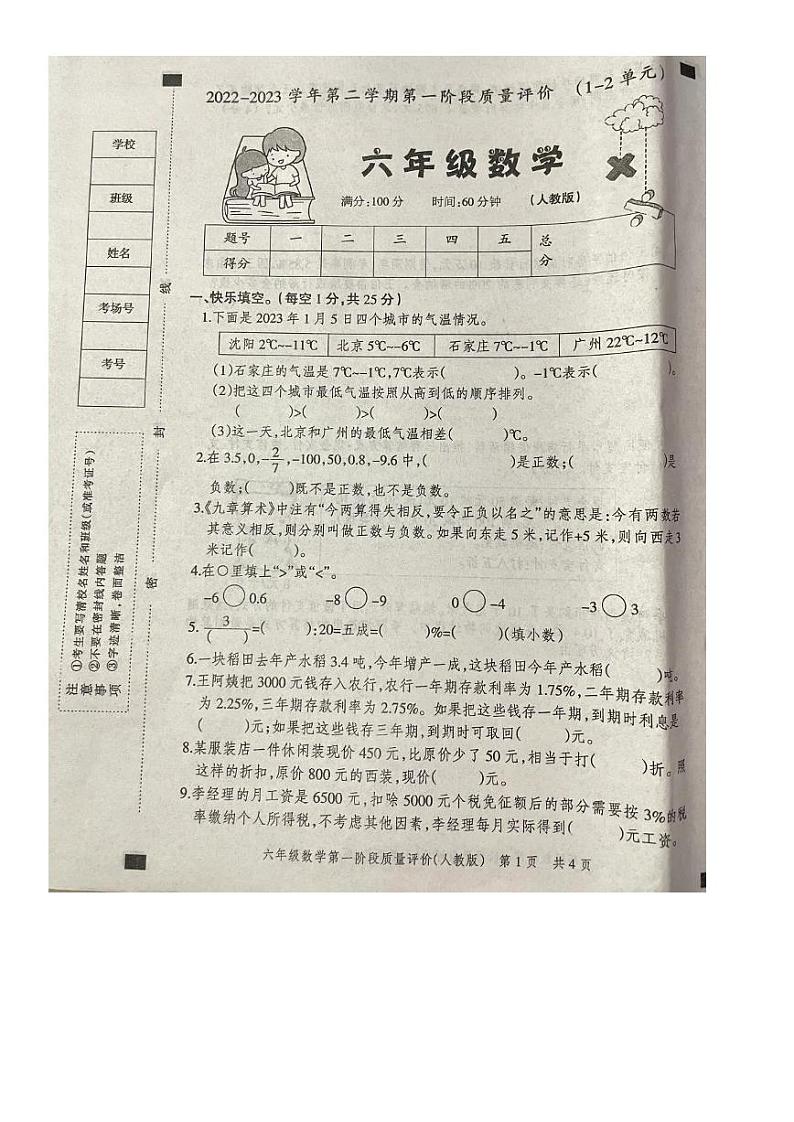 2022-2023 学年第二学期第一阶段质量评价 (1-2 单元)
六年级数学
满分:100 分 时间:60 分钟 (人教版)
题号 一 二 三 四 五 总分
得分
学校
班级
姓名
考场号
考号
线
封
密
注意事项
①考生要写清校名姓名和班级(或准考证号)
②不要在密封线内答题
③字迹清晰,卷面整洁
一、快乐填空。(每空 1 分,共 25 分)
1.下面是 2023 年 1 月 5 日四个城市的气温情况。
沈阳 2℃~-11℃ 北京 5℃~-6℃ 石家庄 7℃~-1℃ 广州 22℃~12℃
(1)石家庄的气温是 7℃~-1℃,7℃表示( )。-1℃表示( )。
(2)把这四个城市最低气温按照从高到低的顺序排列。
( )>( )>( )>( )
(3)这一天,北京和广州的最低气温相差( )℃。
2.在 3.5,0,-2/7,-100,50,0.8,-9.6 中,( )是正数;( )是
负数;( )既不是正数,也不是负数。
3.《九章算术》中注有“今两算得失相反,要令正负以名之”的意思是:今有两数若
其意义相反,则分别叫做正数与负数。如果向东走 5 米,记作+5 米,则向西走3
米记作( )。
4.在○里填上“>”或“<”。
-6○0.6 -8○-9 0○-4 -3○3
5. 3/( )=( ):20=五成=( )%=( )(填小数)
6.一块稻田去年产水稻 3.4 吨,今年增产一成,这块稻田今年产水稻( )吨。
7.王阿姨把 3000 元钱存入农行,农行一年期存款利率为 1.75%,二年期存款利率
为 2.25%,三年期存款利率为 2.75%。如果把这些钱存一年期,到期时利息是
( )元;如果把这些钱存三年期,到期时可取回( )元。
8.某服装店一件休闲装现价 450 元,比原价少了 50 元,相当于打( )折。照
这样的折扣,原价 800 元的西装,现价( )元。
9.李经理的月工资是 6500 元,扣除 5000 元个税免征额后的部分需要按 3%的税
率缴纳个人所得税,不考虑其他因素,李经理每月实际得到( )元工资。
六年级数学第一阶段质量评价(人教版) 第 1 页 共 4 页